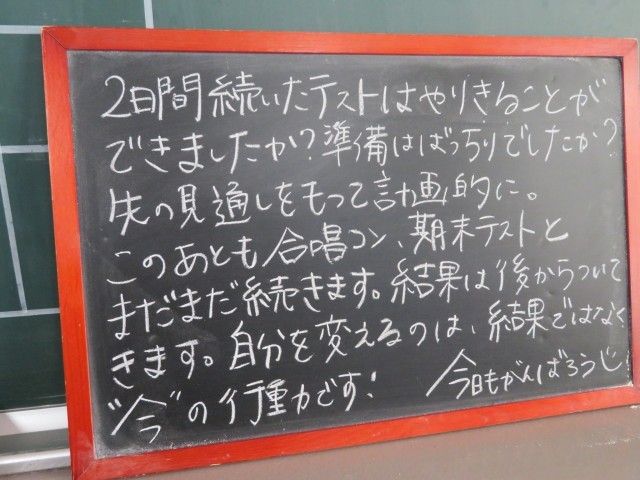 2日間続いたテストはやりきることが
できましたか？準備はばっちりでしたか？
先の見通しをもって計画的に。
このあとも合唱コン、期末テストと
まだまだ続きます。結果は後からついて
きます。自分を変えるのは、結果ではなく
"今"の行動力です！ 今日もがんばろうじ